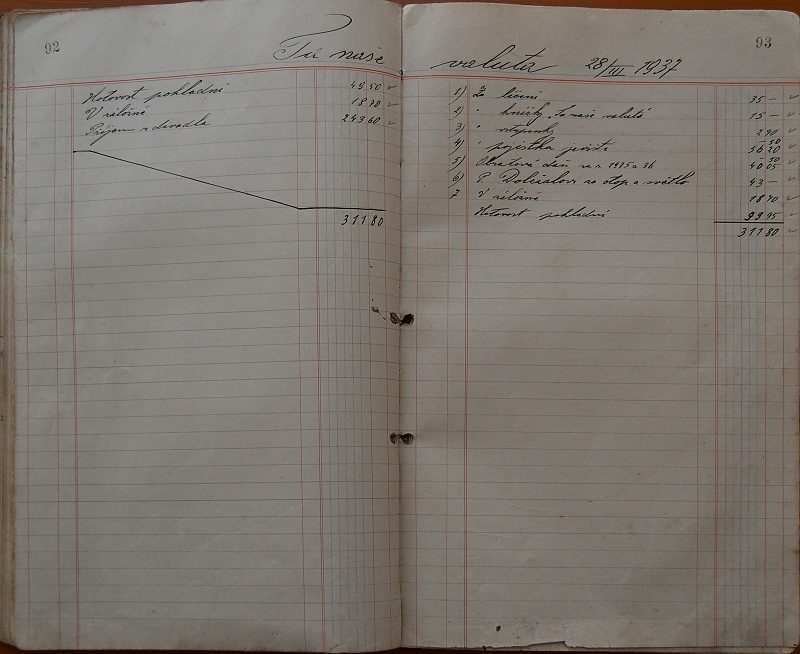 92
Ta naše
Hotovost pokladní 49.50
V záložně 18.70
Příjem z divadla 243.60
311 80
93
valuta 28/III 1937
1) Za líčení 35 —
2) " knížky, Ta naše valuta 15 —
3) " vstupenky 2 90
4) " pojistka jeviště
5) Obratová daň za r. 1935 a 36
6) P. Doležalovi za otop a světlo 43 —
7 V záložně 18 70
Hotovost pokladní 99 95
311 80